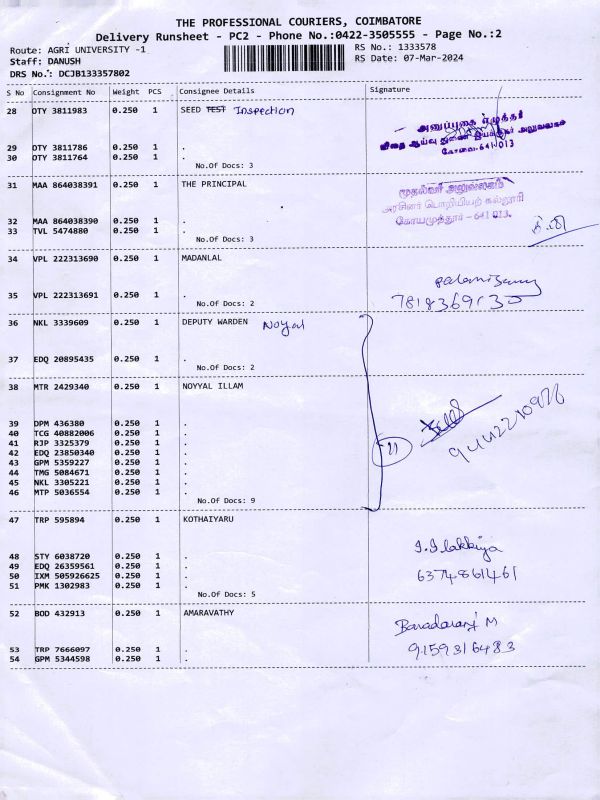 THE PROFESSIONAL COURIERS, COIMBATORE
Delivery Runsheet - PC2 - Phone No.:0422-3505555 - Page No.:2
Route: AGRI UNIVERSITY -1
RS No.: 1333578
Staff: DANUSH
RS Date: 07-Mar-2024
DRS No.: DCJB133357802
S No Consignment No Weight PCS Consignee Details Signature
28 OTY 3811983 0.250 1 SEED TEST Inspection
அனுப்புகை எழுத்தர்
29 OTY 3811786 0.250 1 .
விதை ஆய்வு துணை இயக்குநர் அலுவலகம்
30 OTY 3811764 0.250 1 .
கோவை-641 013
No.Of Docs: 3
31 MAA 864038391 0.250 1 THE PRINCIPAL
முதல்வர் அலுவலகம்
அரசினர் பொறியியற் கல்லூரி
32 MAA 864038390 0.250 1 .
கோயமுத்தூர் - 641 013.
33 TVL 5474880 0.250 1 .
No.Of Docs: 3
34 VPL 222313690 0.250 1 MADANLAL
35 VPL 222313691 0.250 1 .
7818369130
No.Of Docs: 2
36 NKL 3339609 0.250 1 DEPUTY WARDEN Noyal
37 EDQ 20895435 0.250 1 .
No.Of Docs: 2
38 MTR 2429340 0.250 1 NOYYAL ILLAM
39 DPM 436380 0.250 1 .
40 TCG 40882006 0.250 1 .
41 RJP 3325379 0.250 1 .
42 EDQ 23850340 0.250 1 .
43 GPM 5359227 0.250 1 .
44 TMG 5084671 0.250 1 .
45 NKL 3305221 0.250 1 .
46 MTP 5036554 0.250 1 .
No.Of Docs: 9
47 TRP 595894 0.250 1 KOTHAIYARU
48 STY 6038720 0.250 1 .
I.Ilakkiya
49 EDQ 26359561 0.250 1 .
50 IXM 505926625 0.250 1 .
6374861461
51 PMK 1302983 0.250 1 .
No.Of Docs: 5
52 BOD 432913 0.250 1 AMARAVATHY
Baradaraj M
53 TRP 7666097 0.250 1 .
9159316483
54 GPM 5344598 0.250 1 .